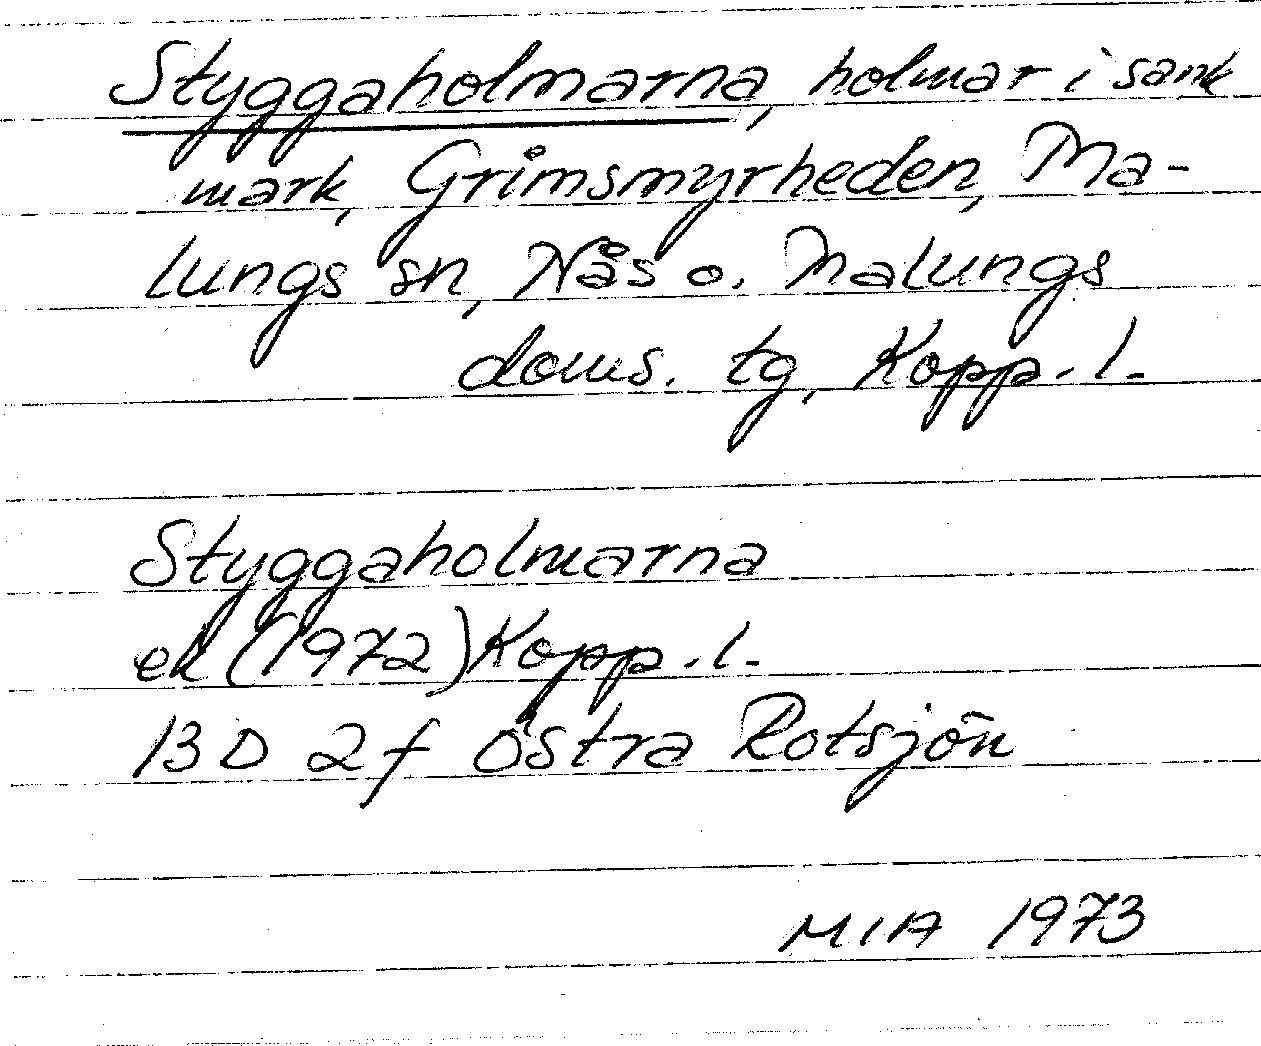 Styggaholmarna, holmar i sank
mark, Grimsmyrheden, Ma-
lungs sn, Nås o. Malungs
doms. tg, Kopp. l.
Styggaholmarna
ek (1972) Kopp. l.
13 D 2 f Östra Rotsjön
MIA 1973